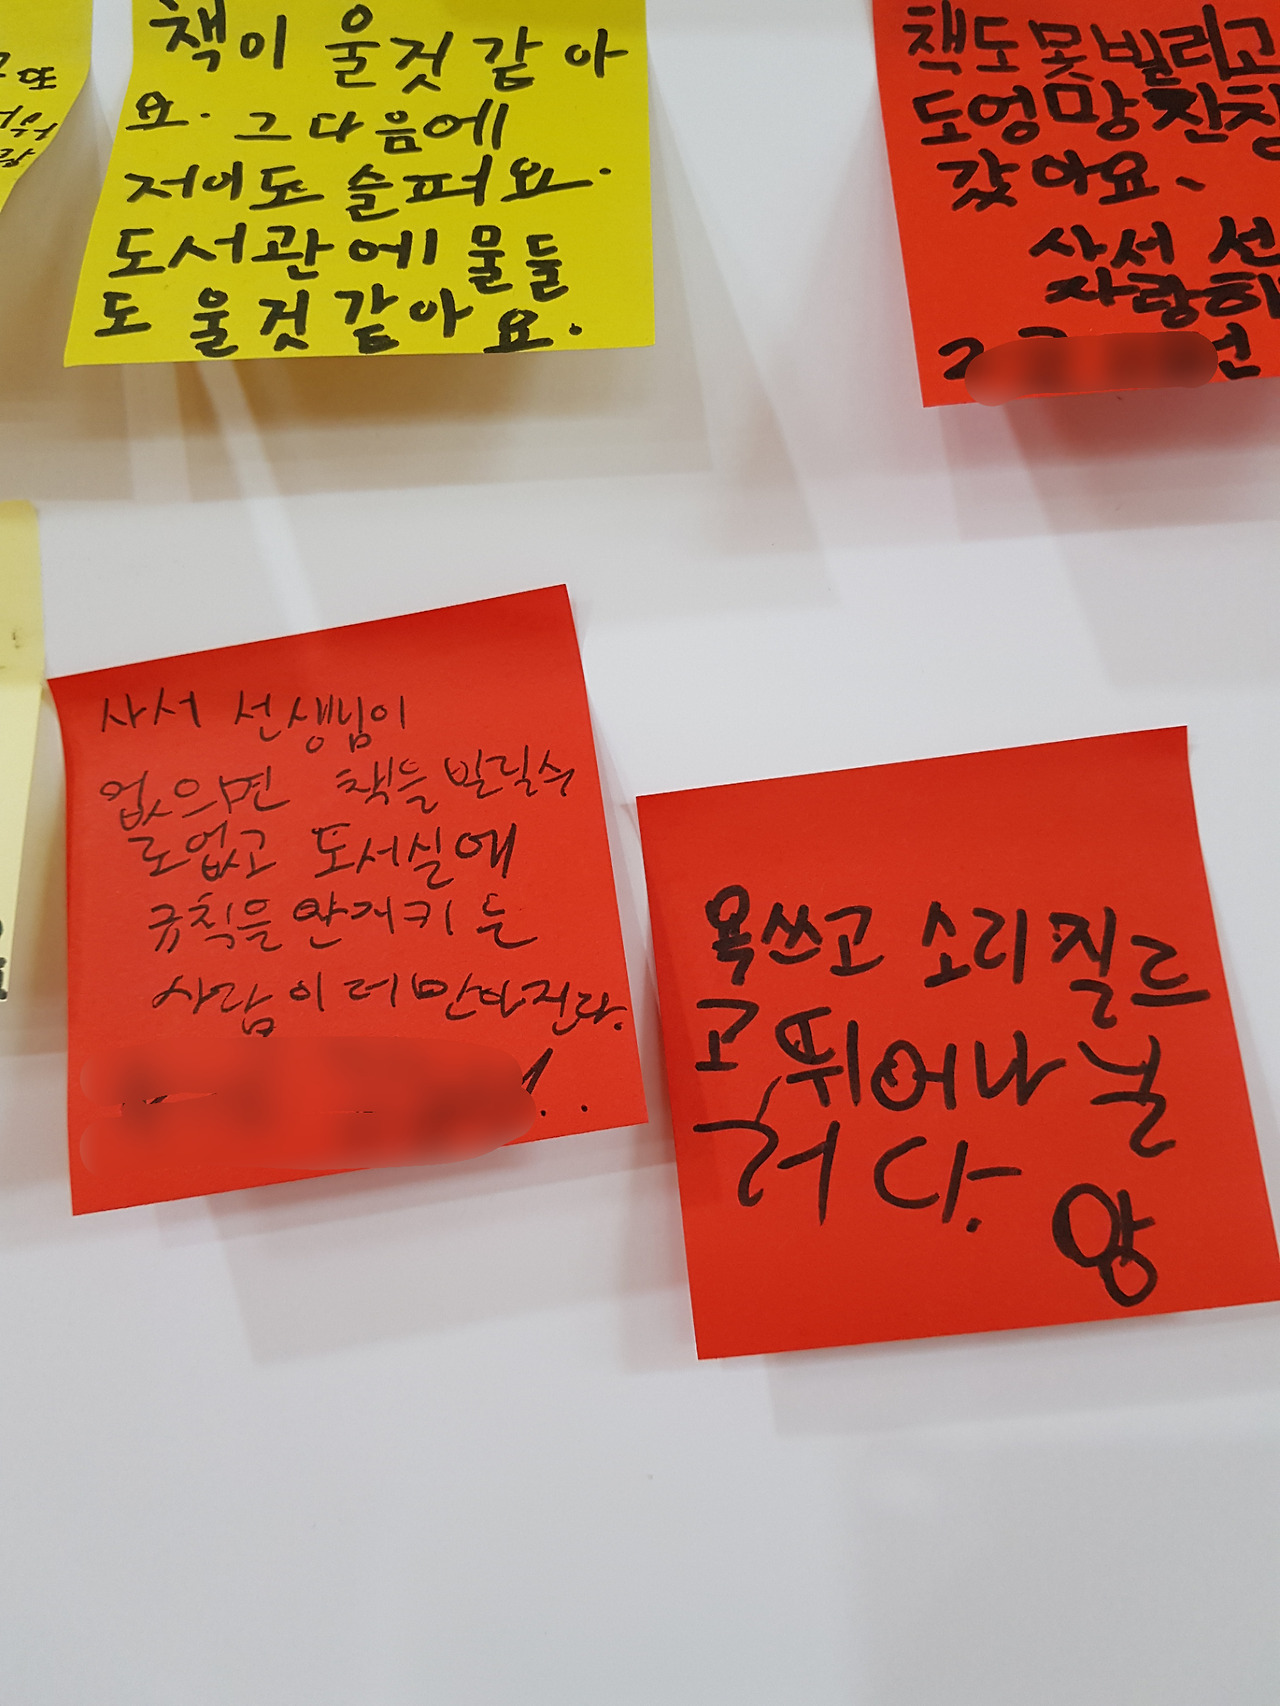 책이 울것같아
요. 그다음에
저이도 슬퍼요.
도서관에 물들
도 울것같아요.
책도못빌리고
도엉망진창
갔아요.
사서 선
사랑해
사서 선생님이
없으면 책을 빌릴수
로없고 도서실에
규칙을 안지키는
사람이 더 많아진다.
욕쓰고 소리질르
고, 뛰어나닐
거다.
양